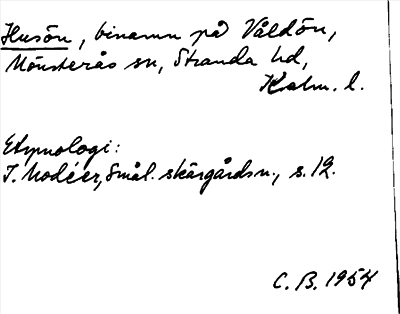 Husön, binamn på Våldön,
Mönsterås sn, Stranda hd,
Kalm. l.
Etymologi:
I. Modéer, Smål. skärgårdsn., s. 12.
C. B. 1954